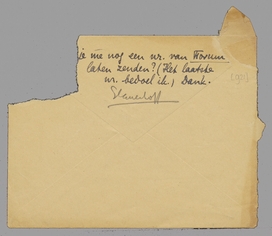 je me nog een nr. van Forum
laten zenden? (Het laatste
nr. bedoel ik.) Dank.
Slauerhoff